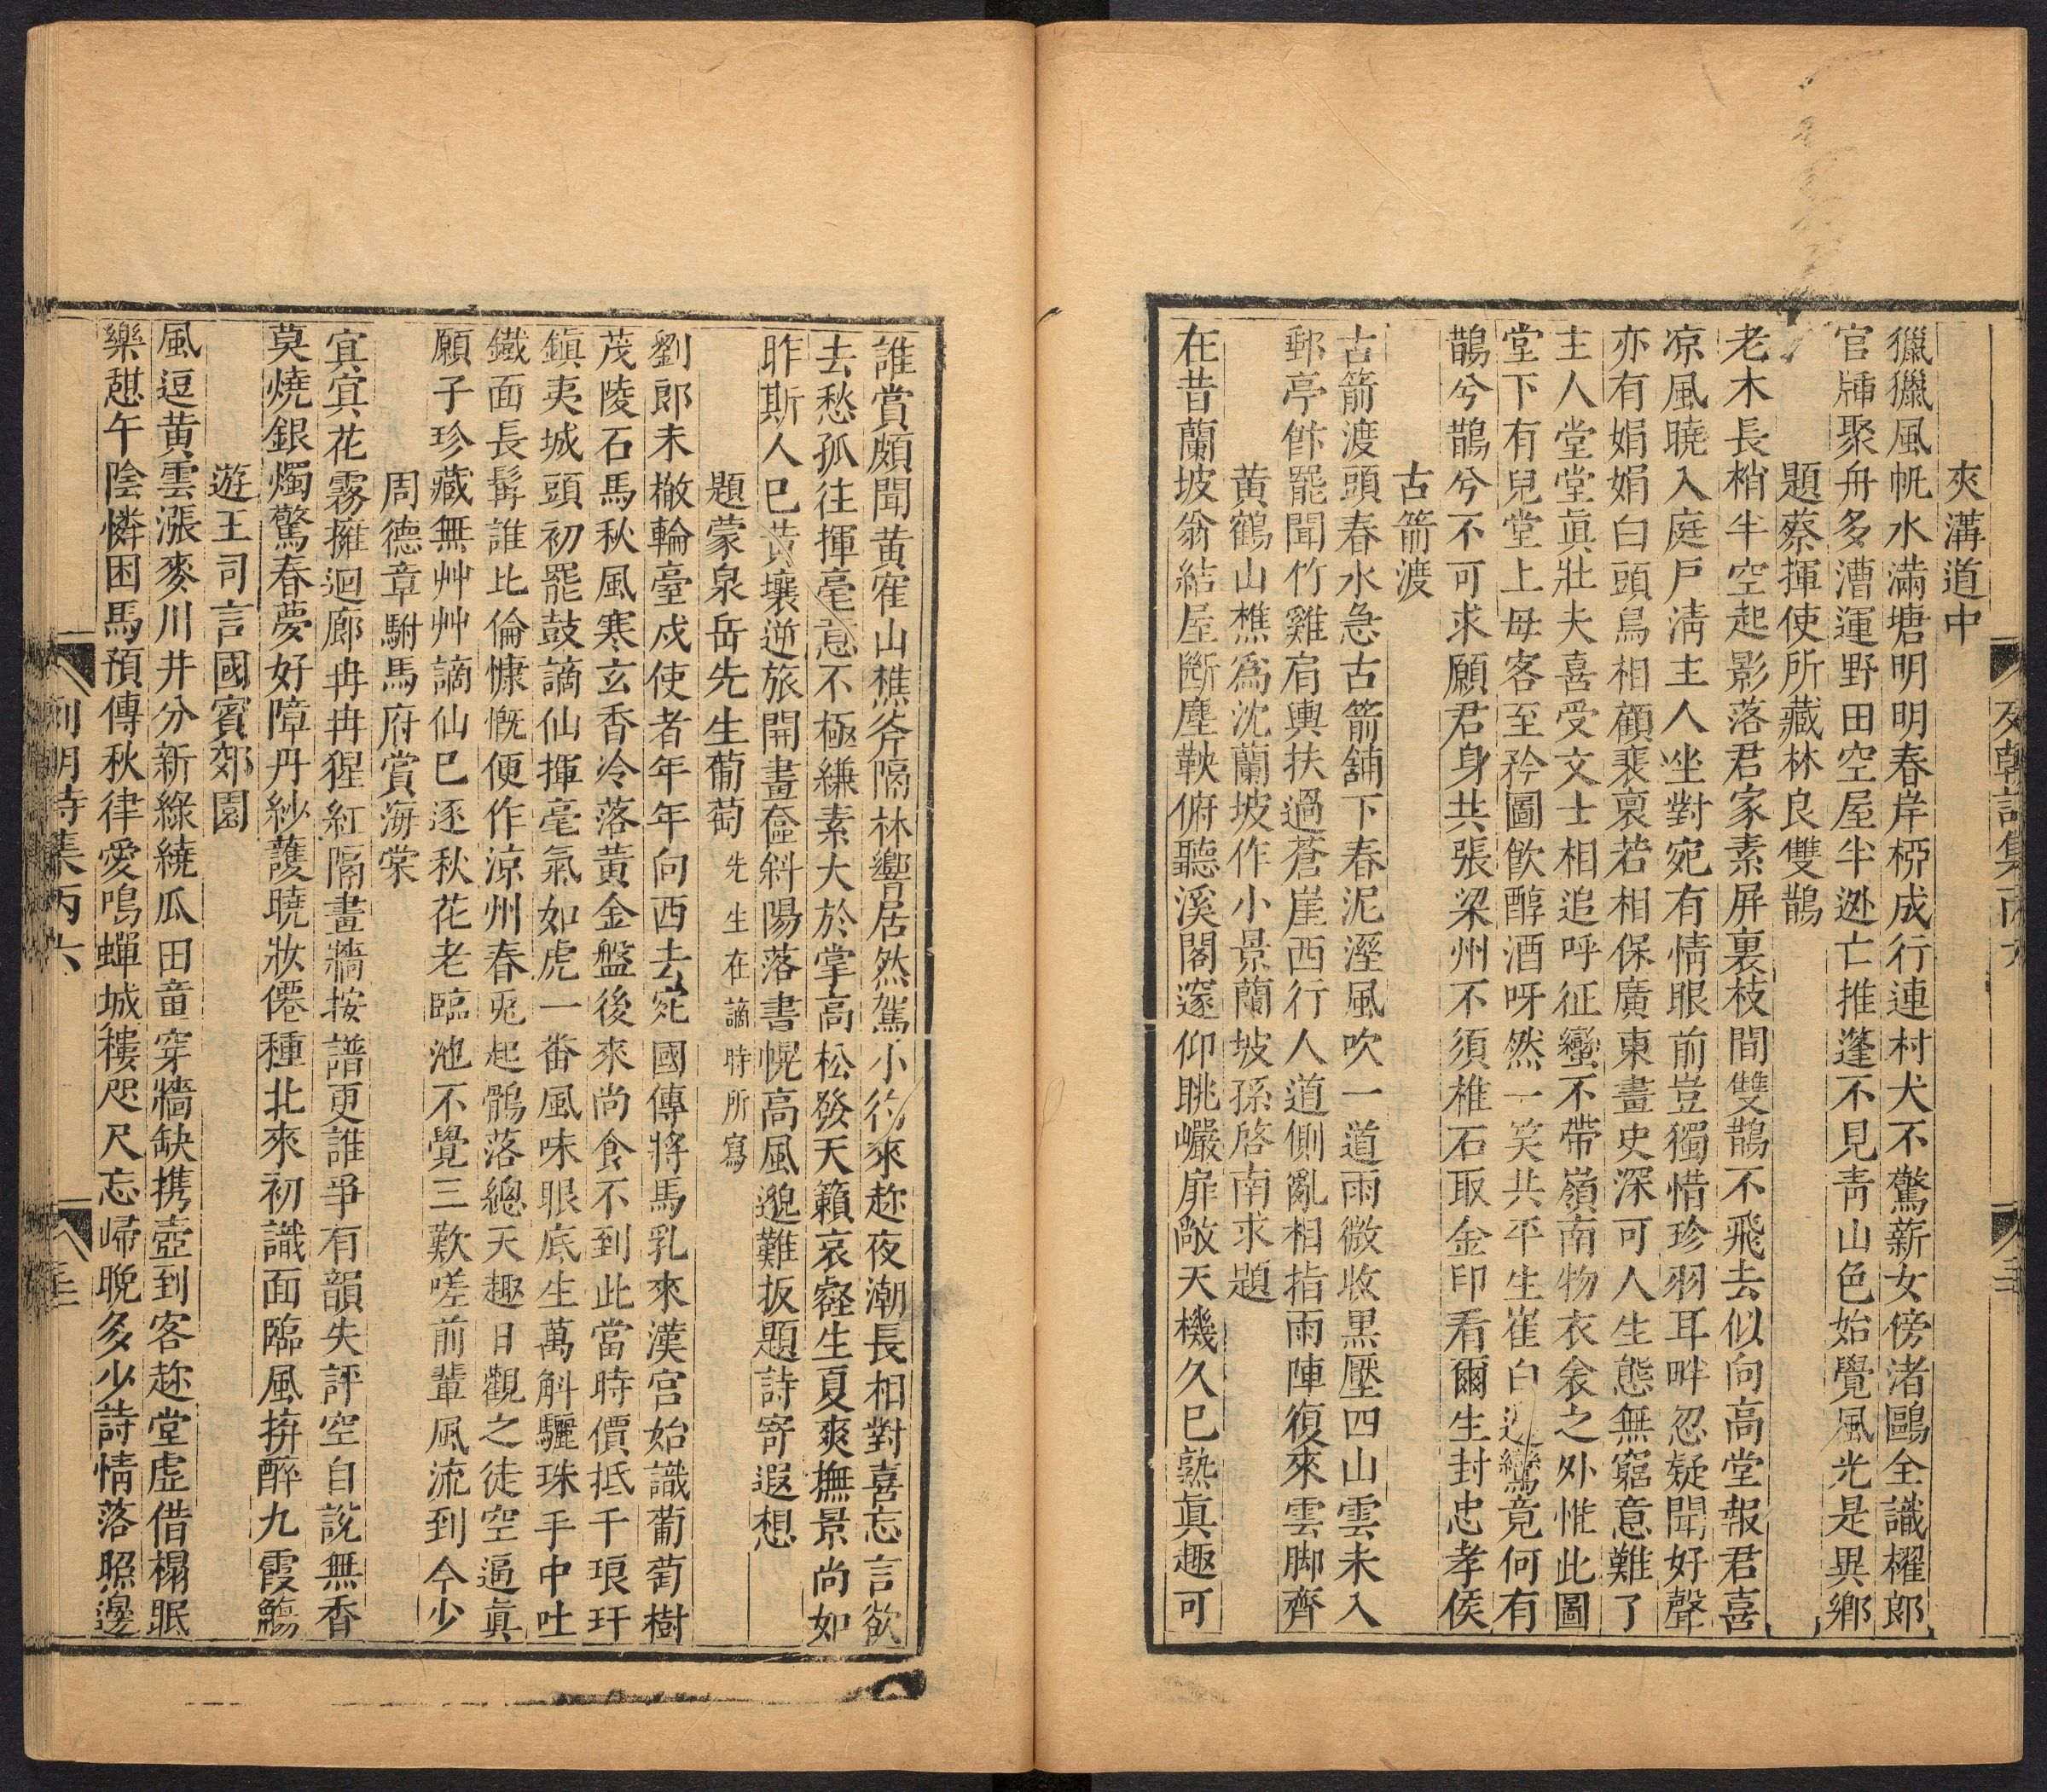 夾溝道中
獵獵風帆水滿塘明明春岸椏成行連村犬不驚薪女傍渚鷗全識櫂郎
官牐聚舟多漕運野田空屋半逊亡推蓬不見靑山色始覺風光是異鄉
題蔡揮使所藏林良雙鵲
老木長梢半空起影落君家素屏裏枝間雙鵲不飛去似向高堂報君喜
凉風曉入庭戶淸主人坐對宛有情眼前豈獨惜珍羽耳畔忍疑聞好聲
亦有娟娟白頭鳥相顧裴裛若相保廣東畫史深可人生態無窮意難了
主人堂堂眞壯夫喜受文士相追呼征蠻不帶嶺南物衣衾之外惟此圖
堂下有兒堂上母客至矜圖飮醇酒呀然一笑共平生崔白邊鸞竟何有
鵲兮鵲兮不可求願君身共張梁州不須椎石取金印看爾生封忠孝侯
古箭渡
古箭渡頭春水急古箭舖下春泥溼風吹一道雨微收黑壓四山雲未入
郵亭飰罷聞竹雞肩輿扶過蒼崖西行人道側亂相指雨陣復來雲脚齊
黃鶴山樵爲沈蘭坡作小景蘭坡孫啓南求題
在昔蘭坡翁結屋斷塵鞅俯聽溪閣邃仰眺巗扉敞天機久巳熟眞趣可
誰賞頗聞黃寉山樵斧隔林響居然駕小彴來趂夜潮長相對喜忘言欲
去愁孤往揮毫意不極縑素大於掌高松發天籟哀壑生夏爽撫景尚如
昨斯人巳黃壤逆旅開畫奩斜陽落書幌高風邈難扳題詩寄遐想
題蒙泉岳先生葡萄先生在謫時所寫
劉郎未撤輪臺戍使者年年向西去宛國傳將馬乳來漢宮始識葡萄樹
茂陵石馬秋風寒玄香冷落黃金盤後來尚食不到此當時價抵千琅玕
鎭夷城頭初罷鼓謫仙揮毫氣如虎一畨風味眼底生萬斛驪珠手中吐
鐵面長髯誰比倫慷慨便作涼州春兎起鶻落總天趣日觀之徒空逼眞
願子珍藏無艸艸謫仙巳逐秋花老臨池不覺三歎嗟前輩風流到今少
周德章駙馬府賞海棠
宐宐花霧擁迴廊冉冉猩紅隔畫牆按譜更誰爭有韻失評空自說無香
莫燒銀燭驚春夢好障丹紗護曉妝僊種北來初識面臨風拚醉九霞觴
遊王司言國賓郊園
風逗黃雲漲麥川井分新綠繞瓜田童穿牆缺携壺到客趂堂虛借榻眠
樂憇午陰憐困馬預傳秋律愛鳴蟬城樓咫尺忘歸晚多少詩情落照邊